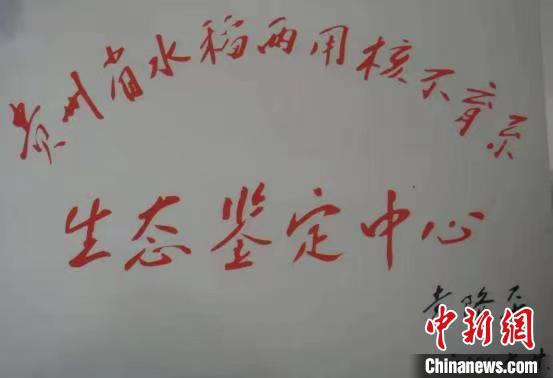 贵州省水稻两用核不育系
生态鉴定中心
袁隆平
中新网
Chinanews.com